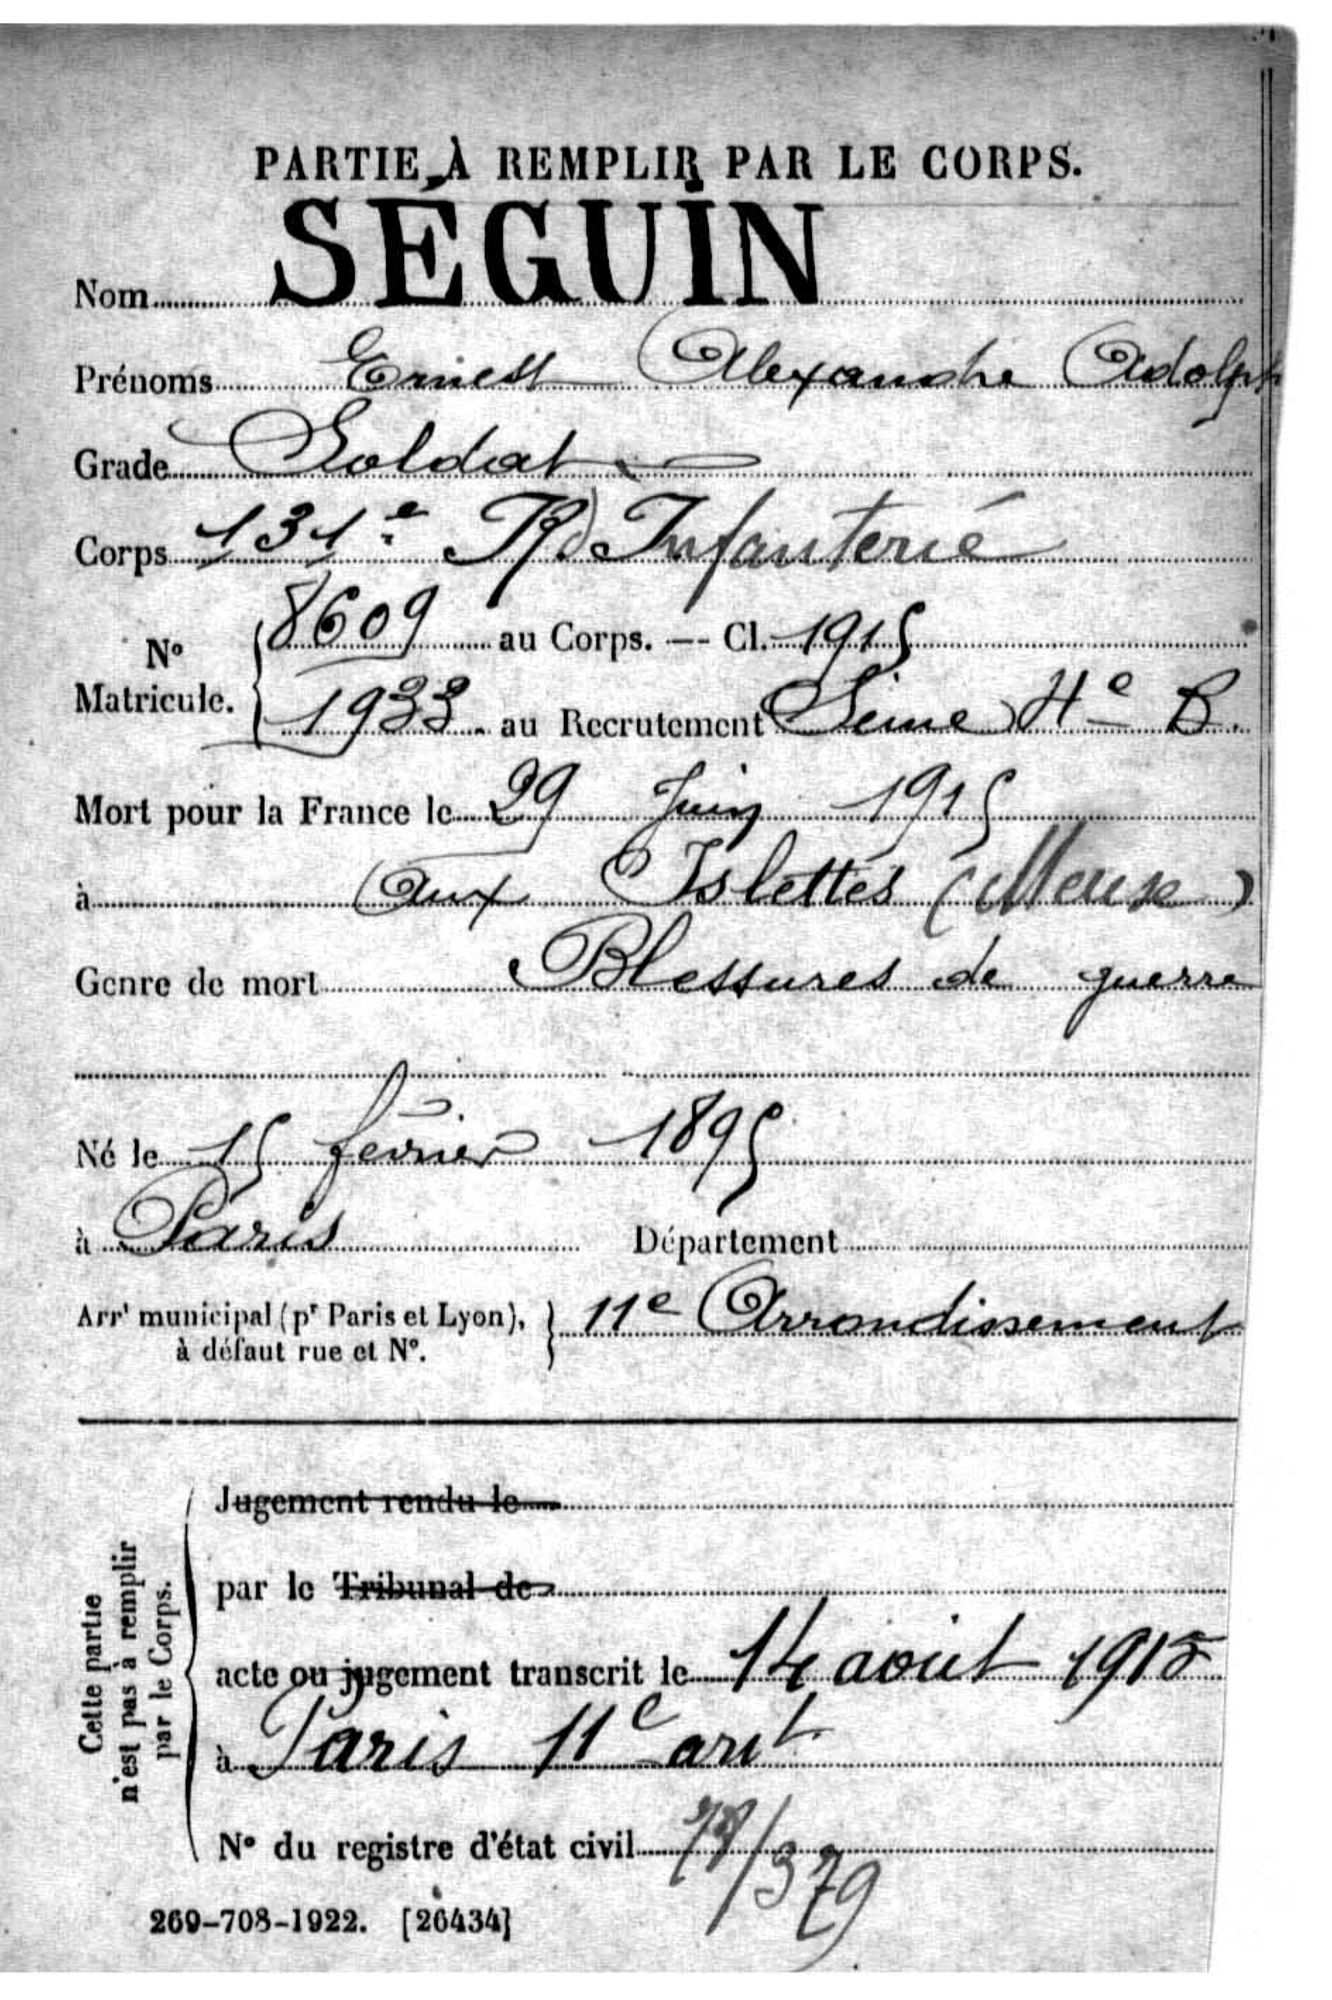 PARTIE À REMPLIR PAR LE CORPS.
Nom SÉGUIN
Prénoms Ernest Alexandre Adolph
Grade Soldat
Corps 131e R d'Infanterie
N° Matricule. 8609 au Corps. — Cl. 1915
1933 au Recrutement Seine 4e B.
Mort pour la France le 29 Juin 1915
à aux Islettes (Meuse)
Genre de mort Blessures de guerre
Né le 15 février 1895
à Paris Département
Arrt municipal (pr Paris et Lyon), à défaut rue et N°. 11e Arrondissement
Cette partie n'est pas à remplir par le Corps.
Jugement rendu le
par le Tribunal de
acte ou jugement transcrit le 14 août 1915
à Paris 11e arrt
N° du registre d'état civil /379
269-708-1922. [26434]